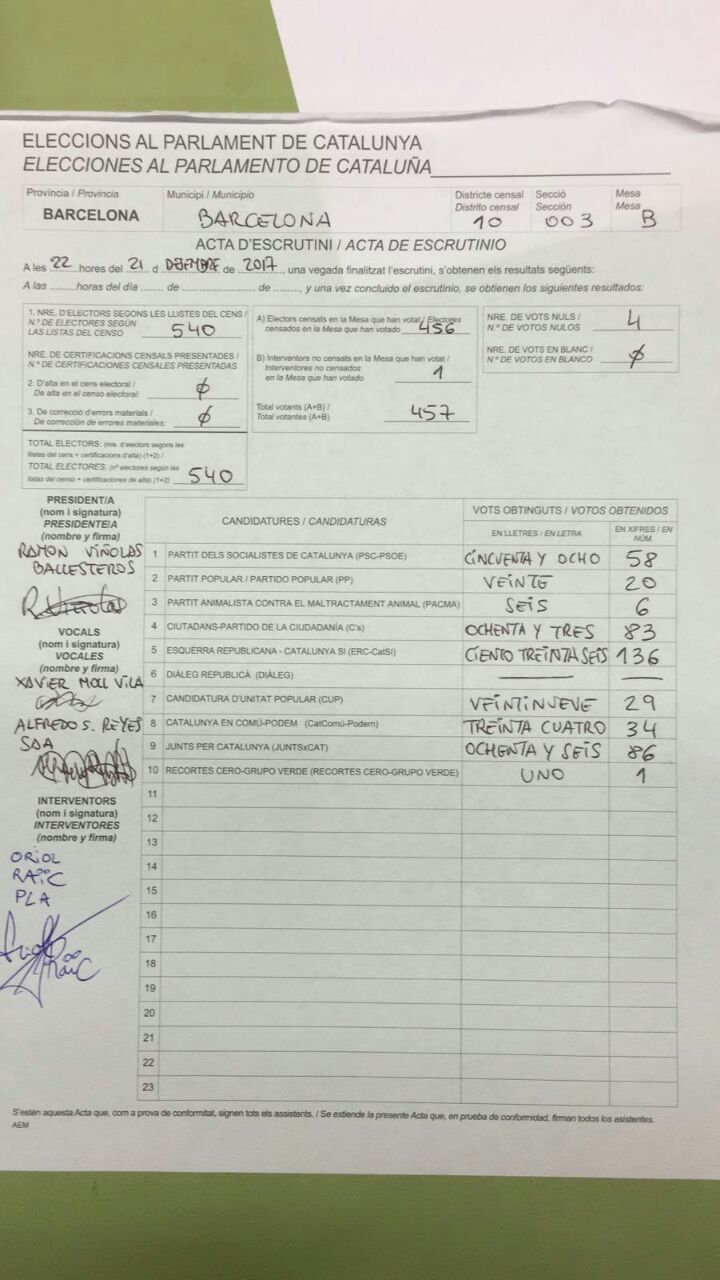 ELECCIONS AL PARLAMENT DE CATALUNYA
ELECCIONES AL PARLAMENTO DE CATALUÑA
Província / Provincia Municipi / Municipio Districte censal Secció Mesa
Distrito censal Sección Mesa
BARCELONA BARCELONA 10 003 B
ACTA D'ESCRUTINI / ACTA DE ESCRUTINIO
A les 22 hores del 21 d DESEMBRE de 2017, una vegada finalitzat l'escrutini, s'obtenen els resultats següents:
A las .........horas del día ...... de .................... de ........., y una vez concluido el escrutinio, se obtienen los siguientes resultados:
1. NRE. D'ELECTORS SEGONS LES LLISTES DEL CENS /
N.º DE ELECTORES SEGÚN
LAS LISTAS DEL CENSO 540
NRE. DE CERTIFICACIONS CENSALS PRESENTADES /
N.º DE CERTIFICACIONES CENSALES PRESENTADAS
2. D'alta en el cens electoral /
De alta en el censo electoral: ∅
3. De correcció d'errors materials /
De corrección de errores materiales: ∅
TOTAL ELECTORS: (nre. d'electors segons les
llistes del cens + certificacions d'alta) (1+2) /
TOTAL ELECTORES: (nº electores según las
listas del censo + certificaciones de alta) (1+2) 540
A) Electors censats en la Mesa que han votat / Electores
censados en la Mesa que han votado 456
B) Interventors no censats en la Mesa que han votat /
Interventores no censados
en la Mesa que han votado 1
Total votants (A+B) /
Total votantes (A+B) 457
NRE. DE VOTS NULS /
N.º DE VOTOS NULOS 4
NRE. DE VOTS EN BLANC /
N.º DE VOTOS EN BLANCO ∅
PRESIDENT/A
(nom i signatura)
PRESIDENTE/A
(nombre y firma)
RAMON VIÑOLAS
BALLESTEROS
VOCALS
(nom i signatura)
VOCALES
(nombre y firma)
XAVIER MOLL VILA
ALFREDO S. REYES
SDA
INTERVENTORS
(nom i signatura)
INTERVENTORES
(nombre y firma)
ORIOL
RAÏC
PLA
CANDIDATURES / CANDIDATURAS VOTS OBTINGUTS / VOTOS OBTENIDOS
EN LLETRES / EN LETRA EN XIFRES / EN NÚM.
1 PARTIT DELS SOCIALISTES DE CATALUNYA (PSC-PSOE) CINCUENTA Y OCHO 58
2 PARTIT POPULAR / PARTIDO POPULAR (PP) VEINTE 20
3 PARTIT ANIMALISTA CONTRA EL MALTRACTAMENT ANIMAL (PACMA) SEIS 6
4 CIUTADANS-PARTIDO DE LA CIUDADANÍA (C's) OCHENTA Y TRES 83
5 ESQUERRA REPUBLICANA - CATALUNYA SI (ERC-CatSí) CIENTO TREINTA SEIS 136
6 DIÀLEG REPUBLICÀ (DIÀLEG)
7 CANDIDATURA D'UNITAT POPULAR (CUP) VEINTINUEVE 29
8 CATALUNYA EN COMÚ-PODEM (CatComú-Podem) TREINTA CUATRO 34
9 JUNTS PER CATALUNYA (JUNTSxCAT) OCHENTA Y SEIS 86
10 RECORTES CERO-GRUPO VERDE (RECORTES CERO-GRUPO VERDE) UNO 1
11
12
13
14
15
16
17
18
19
20
21
22
23
S'estén aquesta Acta que, com a prova de conformitat, signen tots els assistents. / Se extiende la presente Acta que, en prueba de conformidad, firman todos los asistentes.
AEM